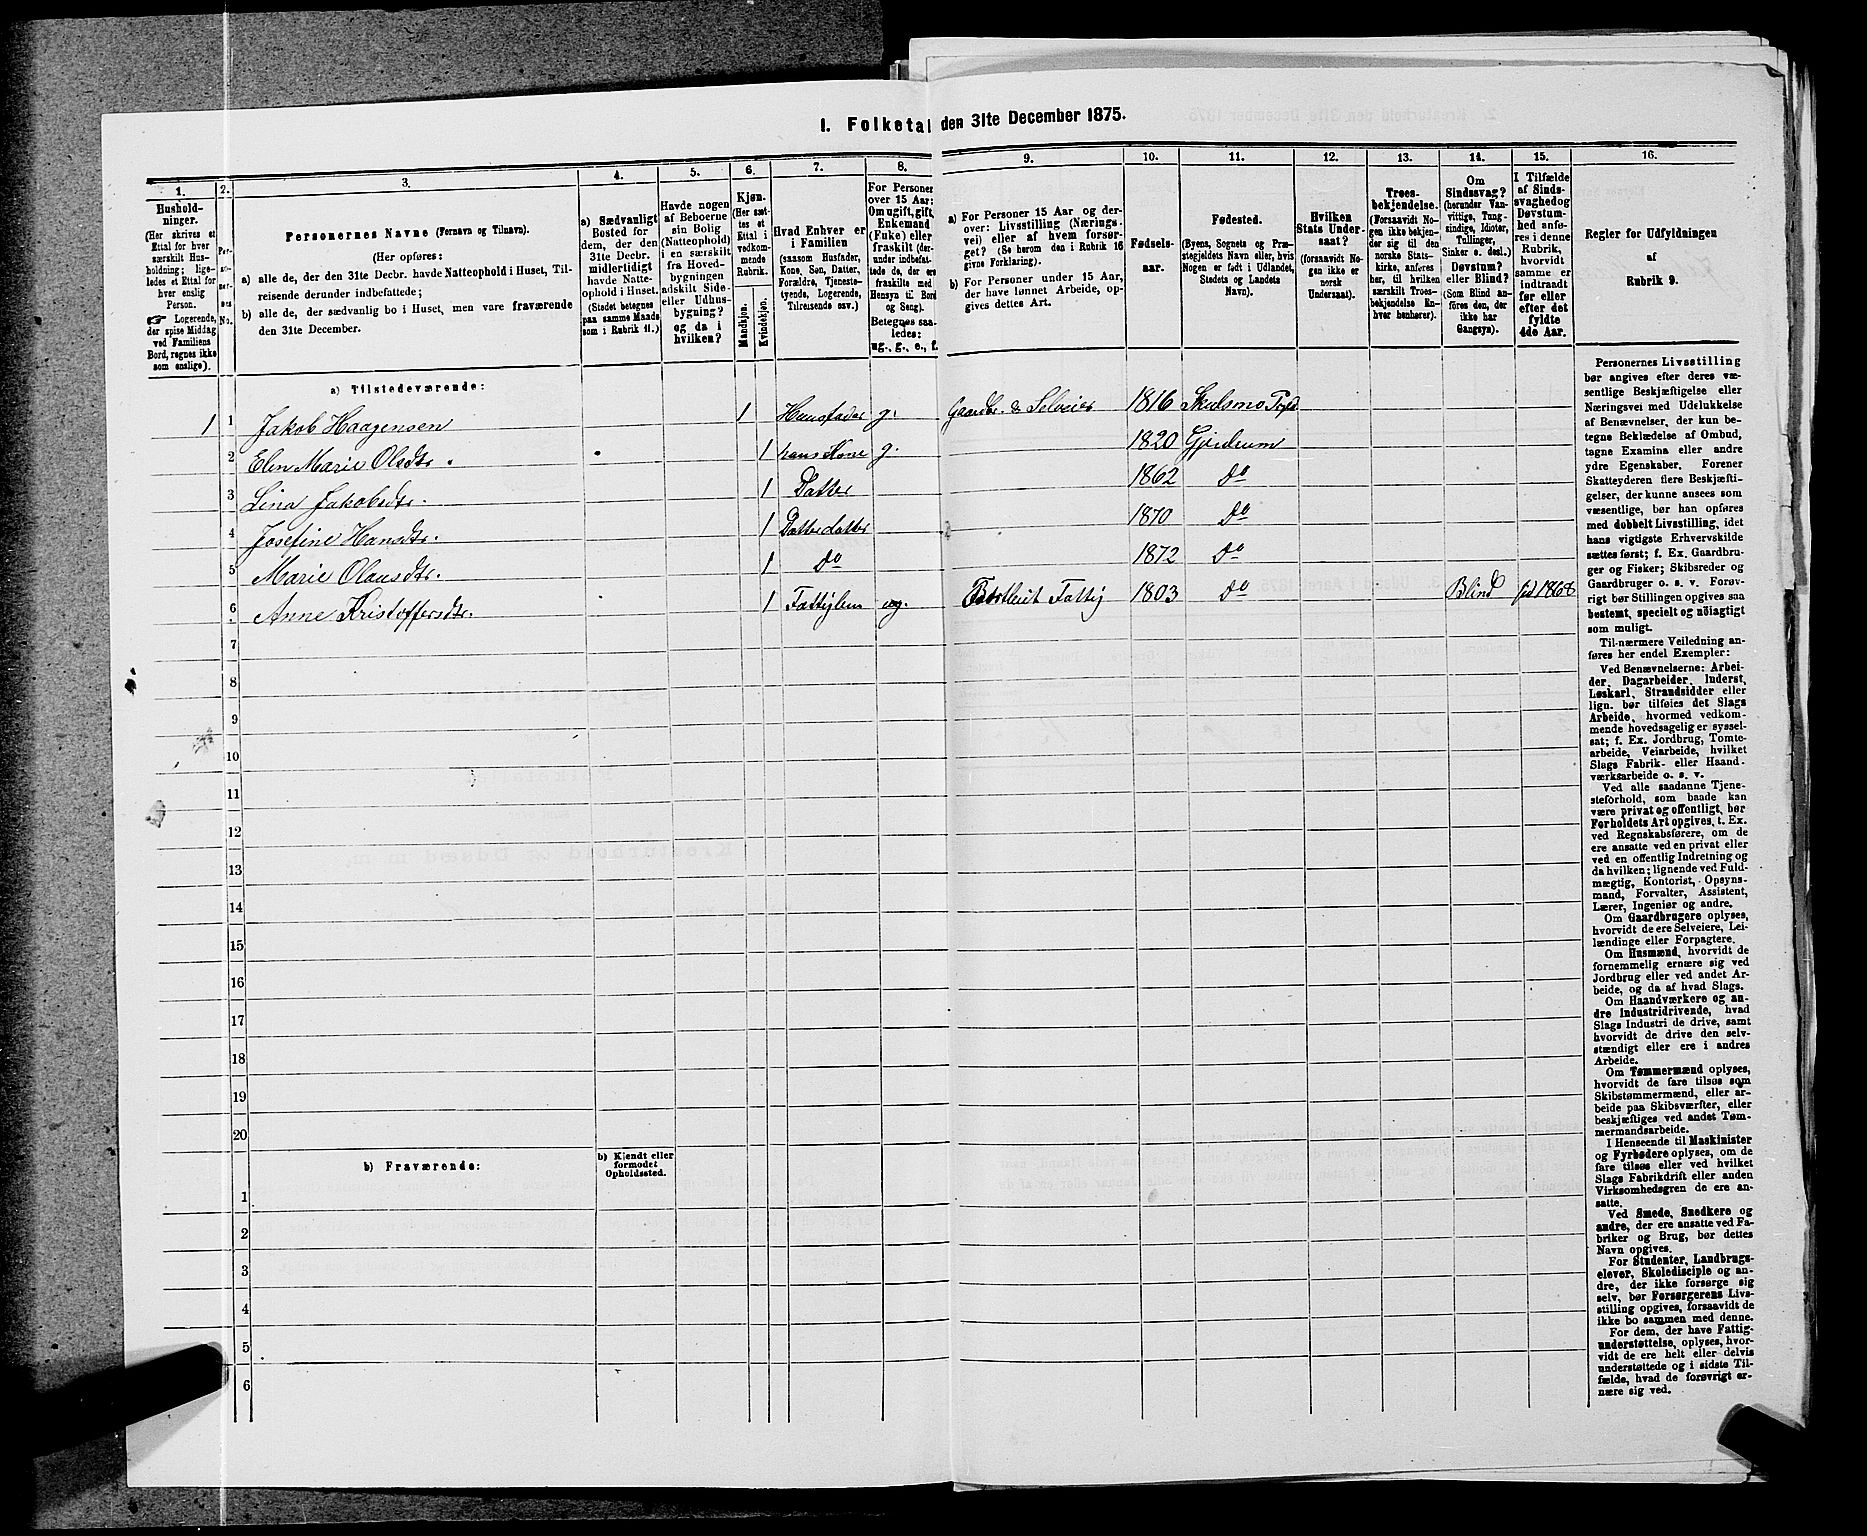 I. Folketal den 31te December 1875.
1. 2. 3. 4. 5. 6. 7. 8. 9. 10. 11. 12. 13. 14. 15. 16.
Hushold-
ninger.
(Her skrives et
Ettal for hver
særskilt Hus-
holdning; lige-
ledes et Ettal for
hver enslig
Person.
☞ Logerende,
der spise Middag
ved Familiens
Bord, regnes ikke
som enslige).
Per-
so-
ner-
nes
No.
Personernes Navne (Fornavn og Tilnavn).
(Her opføres:
a) alle de, der den 31te Decbr. havde Natteophold i Huset, Til-
reisende derunder indbefattede;
b) alle de, der sædvanlig bo i Huset, men vare fraværende
den 31te December.
a) Sædvanligt
Bosted for
dem, der den
31te Decbr.
midlertidigt
havde Natte-
ophold i Huset.
(Stedet betegnes
paa samme Maade
som i Rubrik 11.)
Havde nogen
af Beboerne
sin Bolig
(Natteophold)
i en særskilt
fra Hoved-
bygningen
adskilt Side-
eller Udhus-
bygning?
og da i
hvilken?
Kjøn.
(Her sæt-
tes et
Ettal i
vedkom-
mende
Rubrik.
Mandkjøn.
Kvindekjøn.
Hvad Enhver er
i Familien
(saasom Husfader,
Kone, Søn, Datter,
Forældre, Tjeneste-
tyende, Logerende,
Tilreisende osv.)
For Personer
over 15 Aar:
Om ugift, gift,
Enkemand
(Enke) eller
fraskilt (der-
under indbefat-
tede de, der ere
fraskilte med
Hensyn til Bord
og Seng).
Betegnes saa-
ledes:
ug., g., e., f.
a) For Personer 15 Aar og der-
over: Livsstilling (Nærings-
vei) eller af hvem forsør-
get? (Se herom den i Rubrik 16
givne Forklaring).
b) For Personer under 15 Aar,
der have lønnet Arbeide, op-
gives dettes Art.
Fødsels-
aar.
Fødested.
(Byens, Sognets og Præ-
stegjeldets Navn eller, hvis
Nogen er født i Udlandet,
Stedets og Landets
Navn).
Hvilken
Stats Under-
saat?
(forsaavidt No-
gen ikke er
norsk
Undersaat).
Troes-
bekjendelse.
(Forsaavidt No-
gen ikke bekjen-
der sig til den
norske Stats-
kirke, anføres
her, til hvilken
særskilt Troes-
bekjendelse En-
hver henhører).
Om
Sindssvag?
(herunder Van-
vittige, Tung-
sindige, Idioter,
Tullinger,
Sinker o. desl.)
Døvstum?
eller Blind?
(Som Blind an-
føres den, der
ikke har
Gangsyn).
I Tilfælde
af Sinds-
svaghed og
Døvstum-
hed anfø-
res i denne
Rubrik,
hvorvidt
samme er
indtraadt
før eller
efter det
fyldte
4de Aar.
Regler for Udfyldningen
af
Rubrik 9.
a) Tilstedeværende:
1 1 Jakob Haagensen 1 Huusfader g. Gaardbr. & Selveier 1816 Skedsmo Prgld
2 Elen Marie Olsdtr. 1 hans Kone g. 1820 Gjerdrum
3 Lina Jakobsdtr. 1 Datter 1862 Do
4 Josefine Hansdtr. 1 Datterdatter 1870 Do
5 Marie Olausdtr. 1 Do 1872 Do
6 Anne Kristoffersdtr. 1 Fattiglem ug. Fattig 1803 Do Blind 1868
7
8
9
10
11
12
13
14
15
16
17
18
19
20
b) Fraværende:
b) Kjendt eller
formodet
Opholdssted.
1
2
3
4
5
6
Personernes Livsstilling
bør angives efter deres væ-
sentlige Beskjæftigelse eller
Næringsvei med Udelukkelse
af Benævnelser, der kun be-
tegne Beklædelse af Ombud,
tagne Examina eller andre
ydre Egenskaber. Forener
Skatteyderen flere Beskjæfti-
gelser, der kunne ansees som
væsentlige, bør han opføres
med dobbelt Livsstilling, idet
hans vigtigste Erhvervskilde
sættes først; f. Ex. Gaardbru-
ger og Fisker; Skibsreder og
Gaardbruger o. s. v. Forøv-
rigt bør Stillingen opgives saa
bestemt, specielt og nøiagtigt
som muligt.
Til nærmere Veiledning an-
føres her endel Exempler:
Ved Benævnelserne: Arbei-
der, Dagarbeider, Inderst,
Løskarl, Strandsidder eller
lign. bør tilføies det Slags
Arbeide, hvormed vedkom-
mende hovedsagelig er syssel-
sat; f. Ex. Jordbrug, Tomte-
arbeide, Veiarbeide, hvilket
Slags Fabrik- eller Haand-
værksarbeide o. s. v.
Ved alle saadanne Tjene-
steforhold, som baade kan
være privat og offentligt, bør
Forholdets Art opgives, t. Ex.
ved Regnskabsførere, om de
ere ansatte ved en privat eller
ved en offentlig Indretning og
da hvilken; lignende ved Fuld-
mægtig, Kontorist, Opsyns-
mand, Forvalter, Assistent,
Lærer, Ingeniør og andre.
Om Gaardbrugere oplyses,
hvorvidt de ere Selveiere, Lei-
lændinge eller Forpagtere.
Om Husmænd, hvorvidt de
fornemmelig ernære sig ved
Jordbrug eller ved andet Ar-
beide, og da af hvad Slags.
Om Haandværkere og an-
dre Industridrivende, hvad
Slags Industri de drive, samt
hvorvidt de drive den selv-
stændigt eller ere i andres
Arbeide.
Om Tømmermænd oplyses,
hvorvidt de fare tilsøs som
Skibstømmermænd, eller ar-
beide paa Skibsværfter, eller
beskjæftiges ved andet Tøm-
mermandsarbeide.
I Henseende til Maskinister
og Fyrbødere oplyses, om de
fare tilsøs eller ved hvilket
Slags Fabrikdrift eller anden
Virksomhedsgren de ere an-
satte.
Ved Smede, Snedkere og
andre, der ere ansatte ved Fa-
briker og Brug, bør dettes
Navn opgives.
For Studenter, Landbrugs-
elever, Skoledisciple og an-
dre, der ikke forsørge sig
selv, bør Forsørgerens Livs-
stilling opgives, forsaavidt de
ikke bo sammen med denne.
For dem, der have Fattig-
understøttelse, oplyses, hvor-
vidt de ere helt eller delvis
understøttede og i sidste Til-
fælde, hvad de forøvrigt er-
nære sig ved.